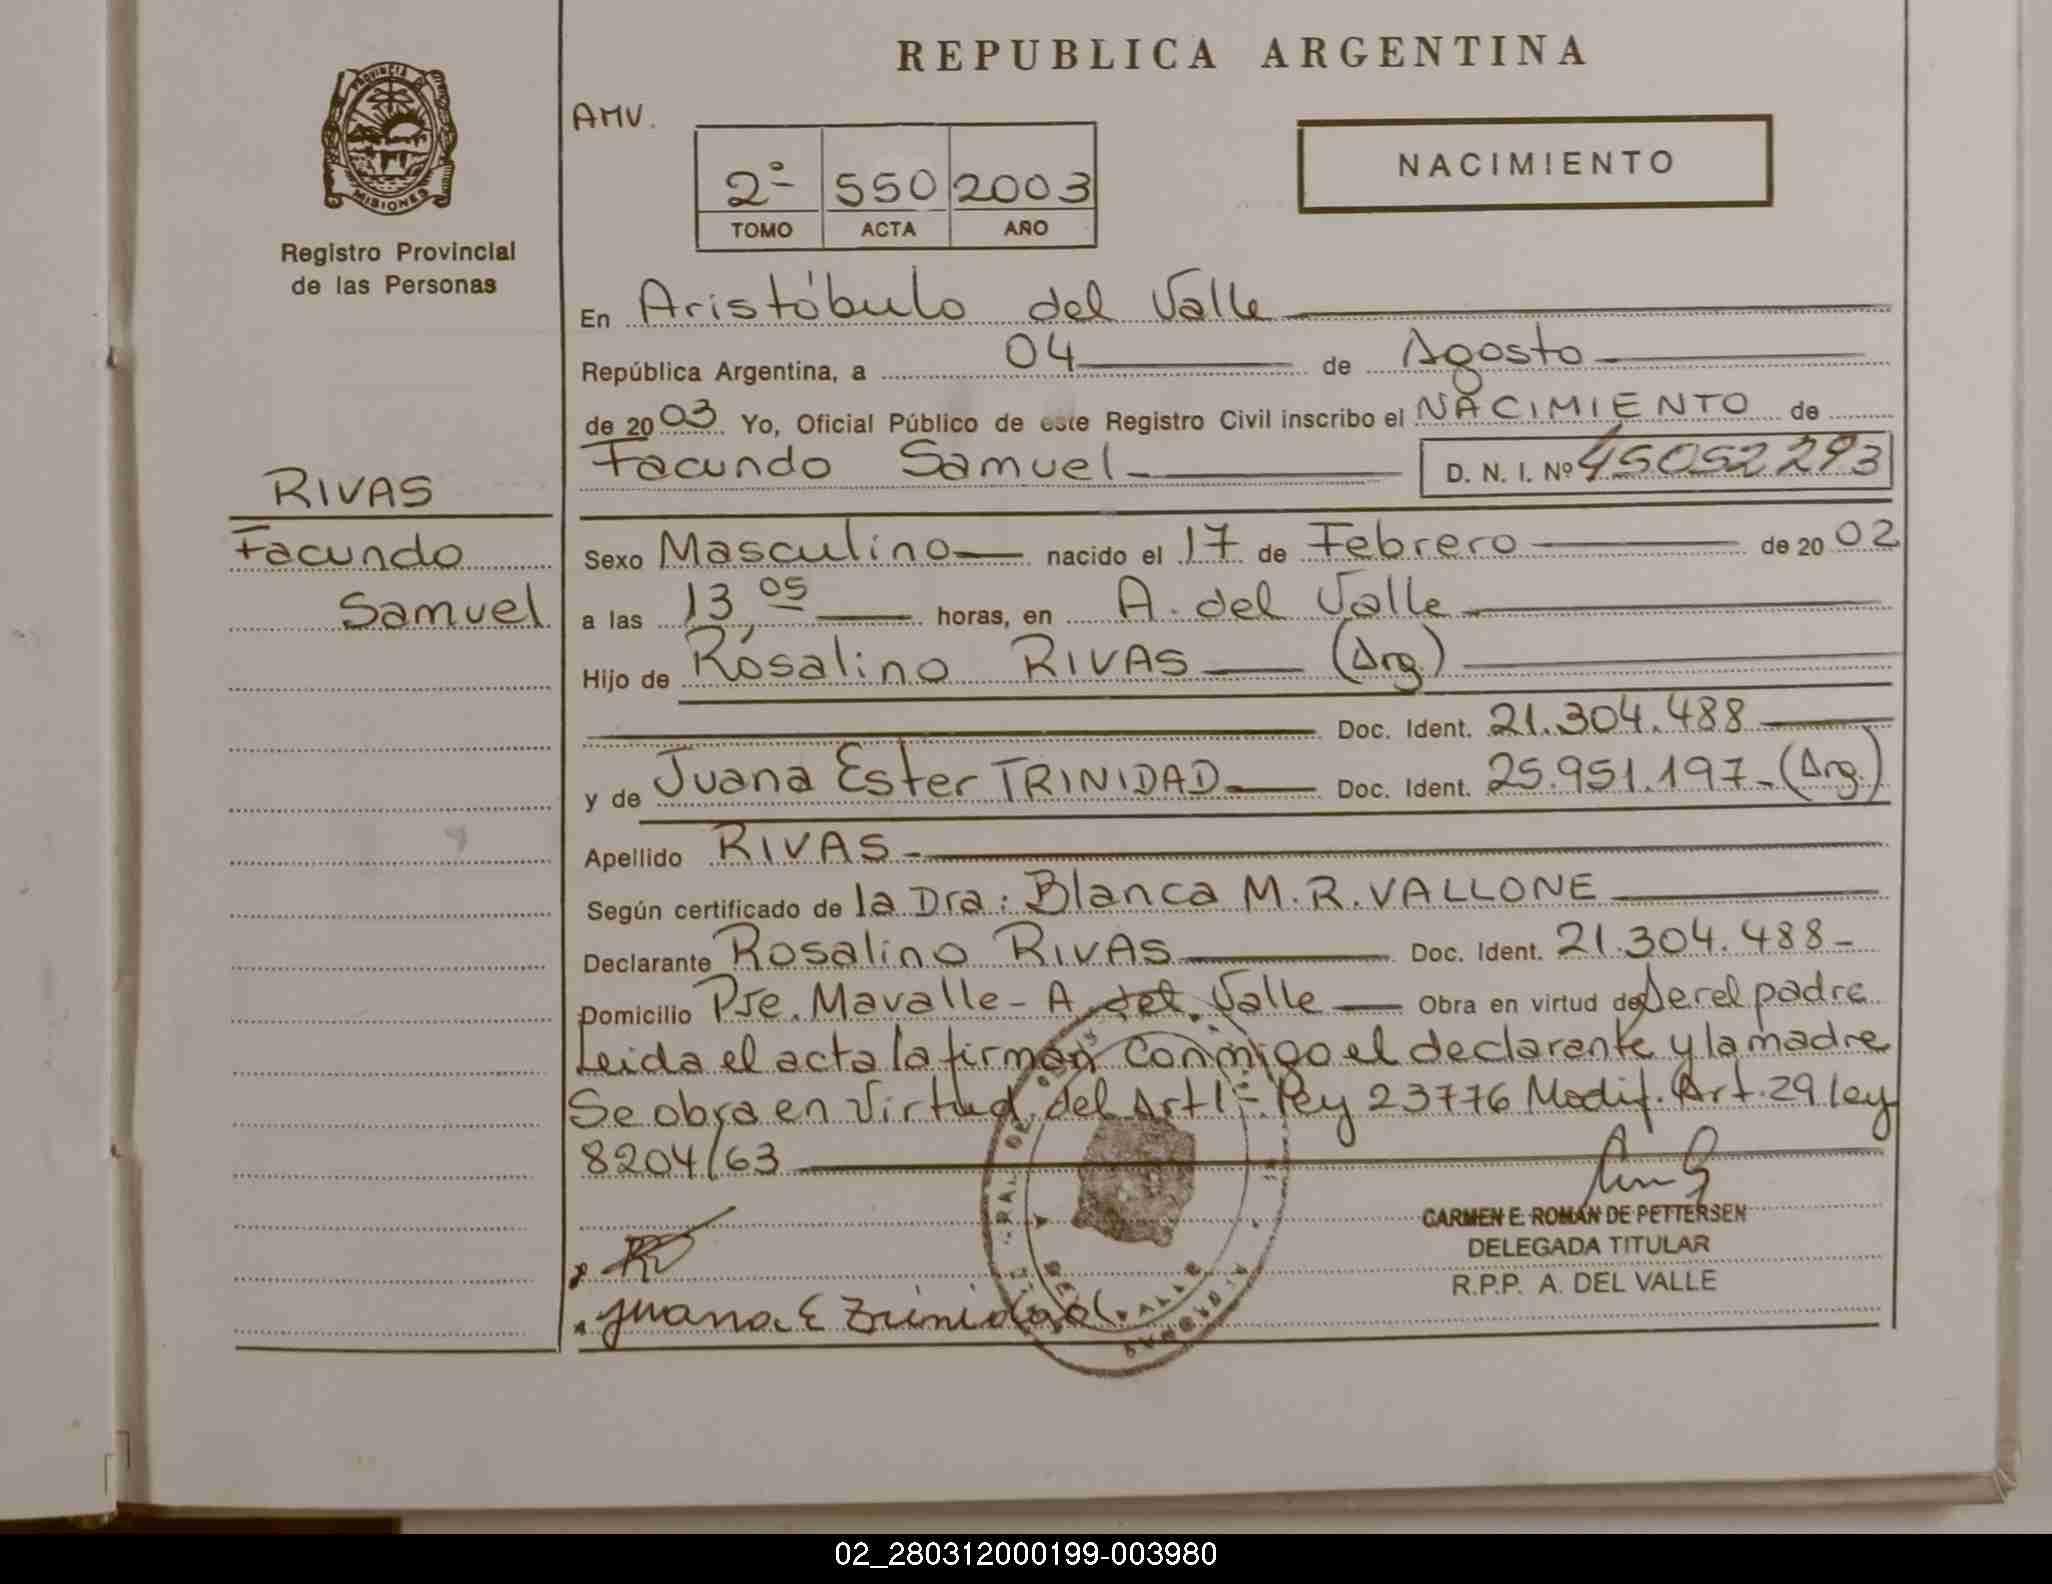 REPUBLICA ARGENTINA
PROVINCIA DE MISIONES
Registro Provincial
de las Personas
AMV.
NACIMIENTO
2º 550 2003
TOMO ACTA AÑO
En Aristóbulo del Valle
República Argentina, a 04 de Agosto
de 2003 Yo, Oficial Público de este Registro Civil inscribo el NACIMIENTO de
Facundo Samuel D. N. I. Nº 45052293
RIVAS
Facundo
Samuel
Sexo Masculino nacido el 17 de Febrero de 2002
a las 13,05 horas, en A. del Valle
Hijo de Rosalino RIVAS (Arg.)
Doc. Ident. 21.304.488
y de Juana Ester TRINIDAD Doc. Ident. 25.951.197-(Arg.)
Apellido RIVAS
Según certificado de la Dra: Blanca M.R. VALLONE
Declarante Rosalino RIVAS Doc. Ident. 21.304.488-
Domicilio Pje. Mavalle - A. del Valle Obra en virtud de Ser el padre
Leida el acta la firman conmigo el declarante y la madre
Se obra en virtud del Art 1º Ley 23776 Modif. Art. 29 ley
8204/63
CARMEN E. ROMAN DE PETTERSEN
DELEGADA TITULAR
R.P.P. A. DEL VALLE
Juana E Trinidad
02_280312000199-003980